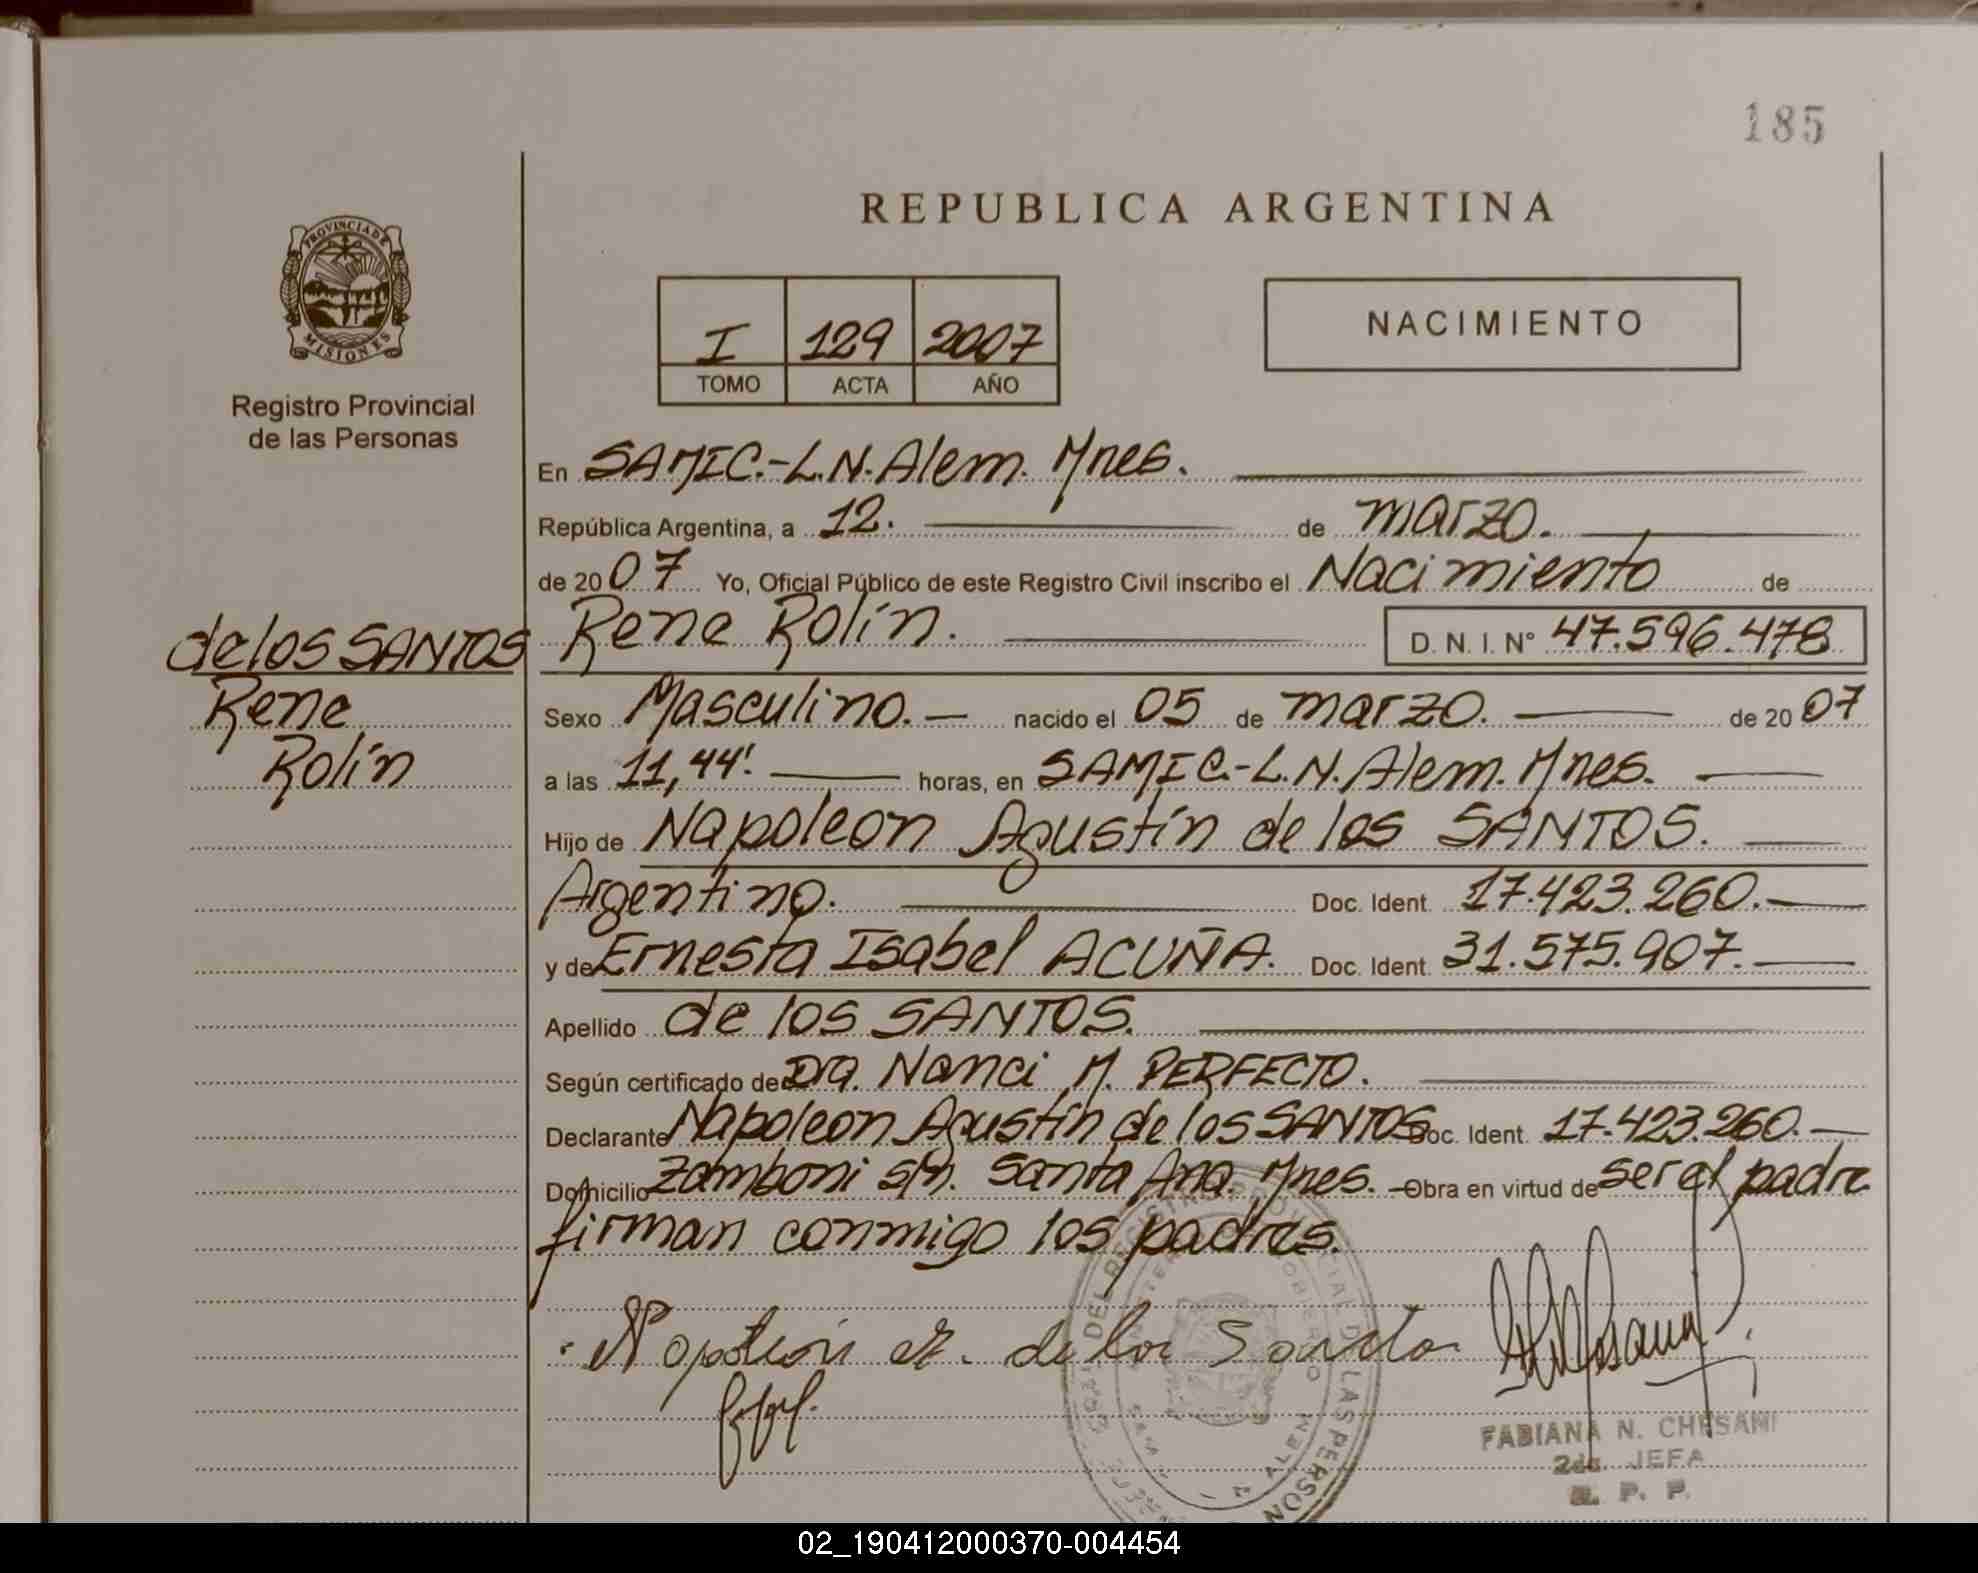 185
REPUBLICA ARGENTINA
PROVINCIA DE
MISIONES
Registro Provincial
de las Personas
I 129 2007
TOMO ACTA AÑO
NACIMIENTO
En SAMIC.-L.N.Alem. Mnes.
República Argentina, a 12. de marzo.
de 2007 Yo, Oficial Público de este Registro Civil inscribo el Nacimiento de
Rene Rolín. D. N. I. N° 47.596.478
de los SANTOS
Rene
Rolín
Sexo Masculino. nacido el 05 de marzo. de 2007
a las 11,44'. horas, en SAMIC.-L.N.Alem. Mnes.
Hijo de Napoleon Agustín de los SANTOS.
Argentino. Doc. Ident. 17.423.260.
y de Ernesta Isabel ACUÑA. Doc. Ident. 31.575.907.
Apellido de los SANTOS.
Según certificado de Dra. Nanci M. PERFECTO.
Declarante Napoleon Agustín de los SANTOS Doc. Ident. 17.423.260.
Domicilio Zamboni s/n. Santa Ana. Mnes. - Obra en virtud de ser el padre
firman conmigo los padres.
Napoleón A. de los Santos
FABIANA N. CHESANI
2da. JEFA
R. P. P.
02_190412000370-004454